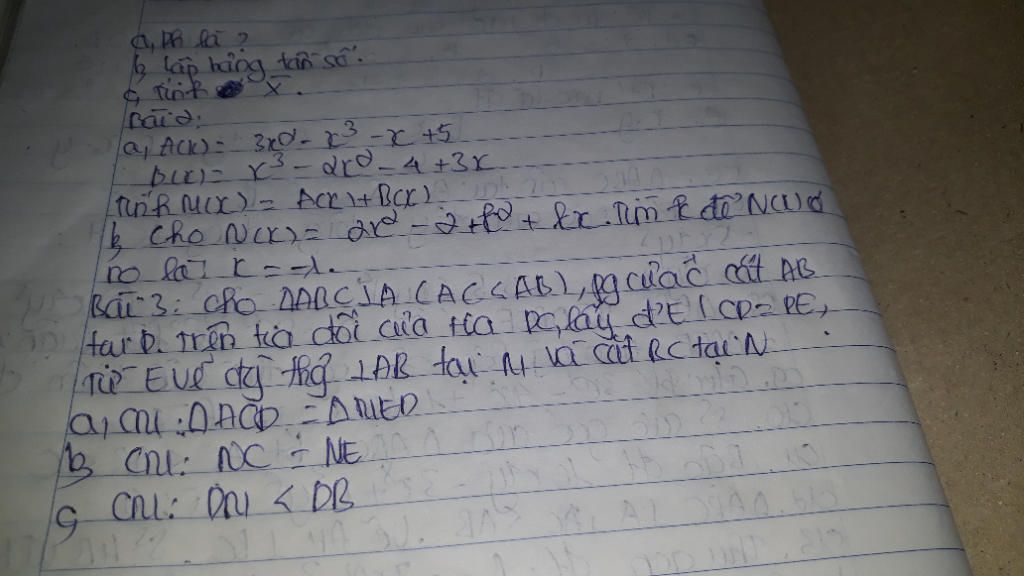 a, Dh là ?
b, lập bảng tần số.
c, Tính X̄.
Bài 2:
a, A(x) = 3x² - x³ - x + 5
B(x) = x³ - 2x² - 4 + 3x
Tính M(x) = A(x) + B(x)
b, Cho N(x) = 2x² - 2 + k² + kx. Tìm k để N(x) có
no là: x = -1.
Bài 3: Cho ΔABC ⊥ A (AC < AB), pg của C cắt AB
tại D. Trên tia đối của tia DC, lấy đ' E | CD = DE,
Từ E vẽ đg thg ⊥ AB tại M và cắt BC tại N
a, CM: ΔACD = ΔMED
b, CM: NC = NE
c, CM: DM < DB